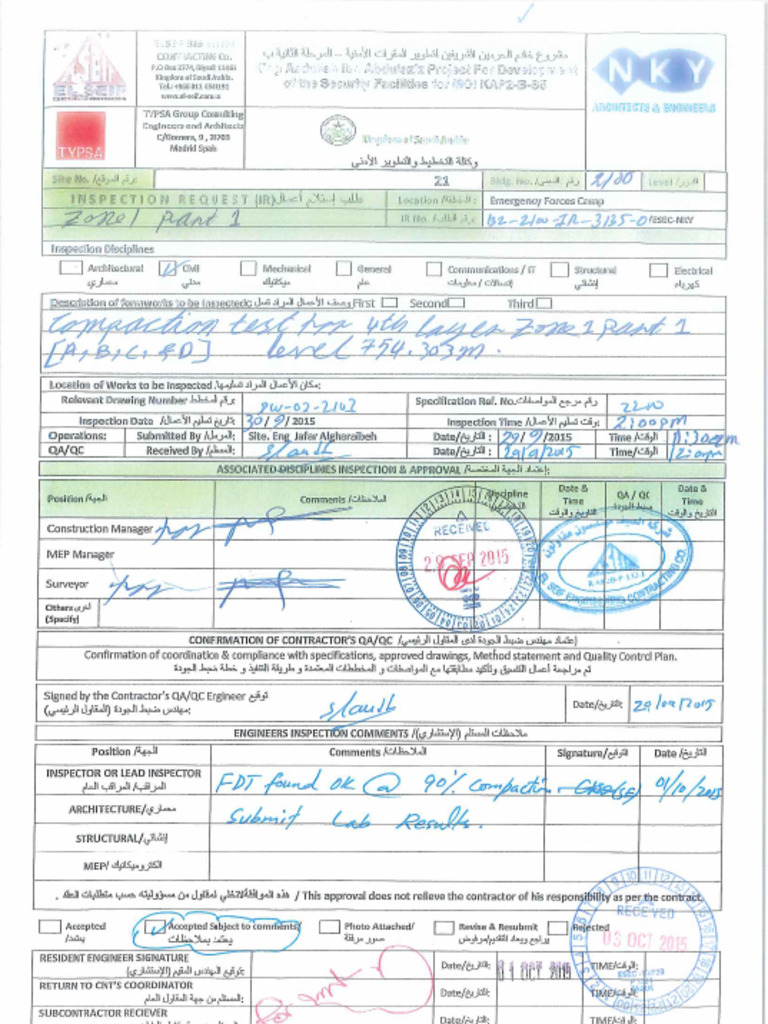 EL SEIF
CONTRACTING Co.
P.O Box 2774, Riyadh 11461
Kingdom of Saudi Arabia.
مشروع خادم الحرمين الشريفين لتطوير المقرات الأمنية – المرحلة الثانية ب
King Abdullah Bin Abdulaziz's Project For Development
of the Security Facilities for MOI KAP2-B-85
NKY
ARCHITECTS & ENGINEERS
TYPSA
TYPSA Group Consulting
Engineers and Architects
C/Gomera, 9, 28203
Madrid Spain
Kingdom of Saudi Arabia
وكالة التخطيط والتطوير الأمني
Site No. /رقم الموقع: 21 Bldg. No. /رقم المبنى 2100 Level /الدور
INSPECTION REQUEST (IR)/طلب إستلام أعمال Location /المنطقة: Emergency Forces Camp
Zone 1 Part 1 IR No. /رقم الطلب: B2-2100-IR-3135-0/ESEC-NKY
Inspection Disciplines
Architectural Civil Mechanical General Communications / IT Structural Electrical
معماري مدني ميكانيك عام إتصالات / معلومات إنشائي كهرباء
Description of items/works to be Inspected: وصف الأعمال المراد First Second Third
Compaction test for 4th layer Zone 1 Part 1
[A, B, C, & D] level 754.303m.
Location of Works to be Inspected /مكان الأعمال المراد تسليمها:
Relevant Drawing Number /رقم المخطط PW-02-2102 Specification Ref. No. رقم مرجع المواصفات 2200
Inspection Date /تاريخ تسليم الأعمال: 30/9/2015 Inspection Time /وقت تسليم الأعمال: 2:00pm
Operations: Submitted By /المرسل: Site. Eng Jafar Algharaibeh Date/التاريخ: 29/9/2015 Time /الوقت: 1:30pm
QA/QC Received By /المستلم: Date/التاريخ: 29/9/2015 Time/الوقت: 2:00pm
ASSOCIATED DISCIPLINES INSPECTION & APPROVAL /إعتماد الجهة المختصة:
Position /الجهة Comments /الملاحظات Discipline Date & Time التاريخ والوقت QA / QC ضبط الجودة Date & Time التاريخ والوقت
Construction Manager
MEP Manager
Surveyor
Others أخرى
(Specify)
RECEIVED
29 SEP 2015
EL SEIF ENGINEERING CONTRACTING CO.
CONFIRMATION OF CONTRACTOR'S QA/QC /إعتماد مهندس ضبط الجودة لدى المقاول الرئيسي)
Confirmation of coordination & compliance with specifications, approved drawings, Method statement and Quality Control Plan.
تم مراجعة أعمال التنسيق وتأكيد مطابقتها مع المواصفات و المخططات المعتمدة و طريقة التنفيذ و خطة ضبط الجودة
Signed by the Contractor's QA/QC Engineer توقيع
مهندس ضبط الجودة (المقاول الرئيسي): Date/التاريخ: 29/09/2015
ENGINEERS INSPECTION COMMENTS /ملاحظات المستلم (الإستشاري)
Position /الجهة Comments /الملاحظات Signature/التوقيع Date /التاريخ
INSPECTOR OR LEAD INSPECTOR FDT found OK @ 90% Compaction. 01/10/2015
المراقب/ المراقب العام
ARCHITECTURE/معماري Submit Lab Results.
STRUCTURAL/إنشائي
MEP/الكتروميكانيك
هذه الموافقة لا تخلي المقاول من مسؤوليته حسب متطلبات العقد. / This approval does not relieve the contractor of his responsibility as per the contract.
Accepted Accepted Subject to comments/ Photo Attached/ Revise & Resubmit Rejected
يعتمد/ يعتمد بملاحظات صور مرفقة يراجع ويعاد التقديم/مرفوض
RECEIVED
03 OCT 2015
RESIDENT ENGINEER SIGNATURE Date/التاريخ: 01 OCT 2015 TIME/الوقت:
توقيع المهندس المقيم (الإستشاري):
RETURN TO CNT'S COORDINATOR Date/التاريخ: TIME/الوقت:
المستلم من جهة المقاول العام:
SUBCONTRACTOR RECIEVER Date/التاريخ: TIME/الوقت: